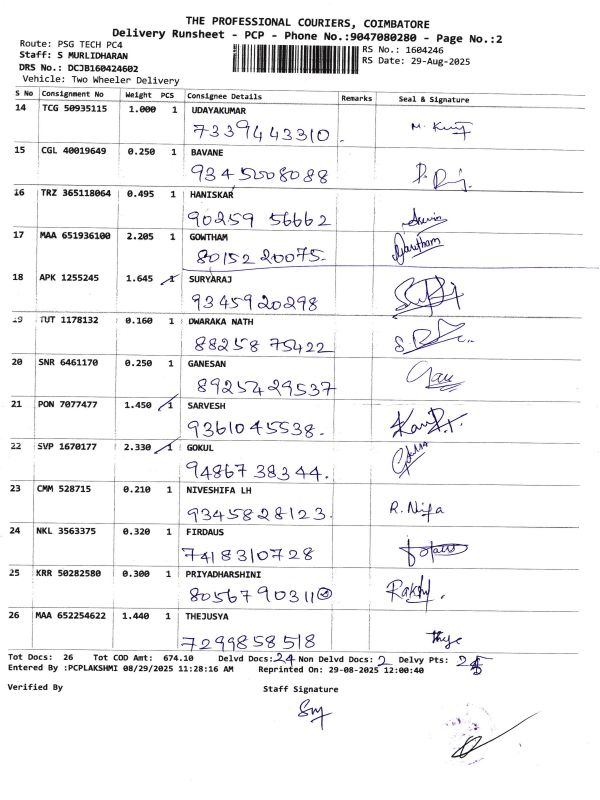 THE PROFESSIONAL COURIERS, COIMBATORE
Delivery Runsheet - PCP - Phone No.:9047080280 - Page No.:2
Route: PSG TECH PC4
RS No.: 1604246
Staff: S MURLIDHARAN
RS Date: 29-Aug-2025
DRS No.: DCJB160424602
Vehicle: Two Wheeler Delivery
S No Consignment No Weight PCS Consignee Details Remarks Seal & Signature
14 TCG 50935115 1.000 1 UDAYAKUMAR
7339443310.
15 CGL 40019649 0.250 1 BAVANE
9345008088
16 TRZ 365118064 0.495 1 HANISKAR
90259 56662
17 MAA 651936100 2.205 1 GOWTHAM
80152 20075. Gowtham
18 APK 1255245 1.645 1 SURYARAJ
9345920298
19 TUT 1178132 0.160 1 DWARAKA NATH
88258 75422
20 SNR 6461170 0.250 1 GANESAN
8925429537
21 PON 7077477 1.450 1 SARVESH
9361045538.
22 SVP 1670177 2.330 1 GOKUL
94867 38344.
23 CMM 528715 0.210 1 NIVESHIFA LH
9345828123. R. Nifa
24 NKL 3563375 0.320 1 FIRDAUS
7418310728
25 KRR 50282580 0.300 1 PRIYADHARSHINI
8056790311 Rakshi.
26 MAA 652254622 1.440 1 THEJUSYA
7299858518
Tot Docs: 26 Tot COD Amt: 674.10 Delvd Docs: 24 Non Delvd Docs: 2 Delvy Pts:
Entered By :PCPLAKSHMI 08/29/2025 11:28:16 AM Reprinted On: 29-08-2025 12:00:40
Verified By Staff Signature